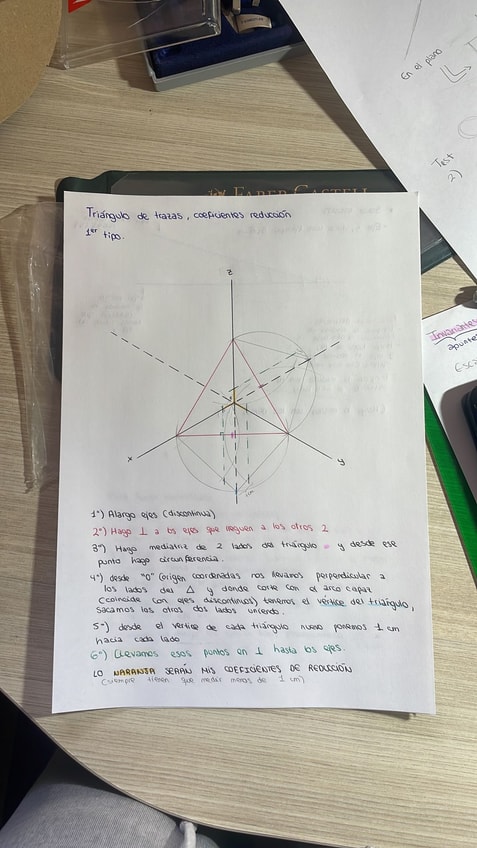 En el plano
Test
2)
FABER-CASTELL
Triángulo de trazas, coeficientes reducción
1er tipo.
Invariantes
apunte
z
x
y
1cm
1º) Alargo ejes (discontinua)
2º) Hago ⊥ a los ejes que lleguen a los otros 2
3º) Hago mediatriz de 2 lados del triángulo y desde ese
punto hago circunferencia.
4º) desde "O" (origen coordenadas nos llevamos perpendicular a
los lados del △ y donde corte con el arco capaz
(coincide con ejes discontinuos) tenemos el vértice del triángulo,
sacamos los otros dos lados uniendo.
5º) desde el vértice de cada triángulo nuevo ponemos 1 cm
hacia cada lado
6º) Llevamos esos puntos en ⊥ hasta los ejes.
LO NARANJA SERÁN MIS COEFICIENTES DE REDUCCIÓN
(siempre tienen que medir menos de 1 cm)